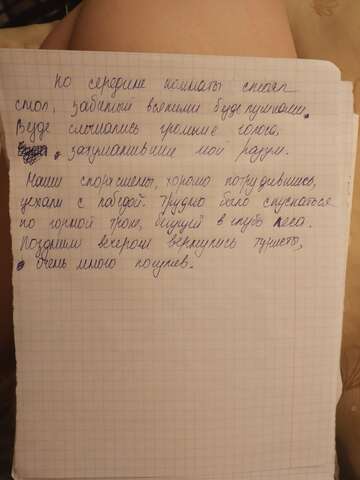 по середине комнаты стоял
стол, забитый всякими
Везде слышались громкие голоса,
затуманившие мой разум.
Наши спортсмены, хорошо потрудившись,
уехали с победой. Трудно было спускаться
по горной тропе, бегущей в глубь леса.
Поздними вечером вернулись туристы,
очень много